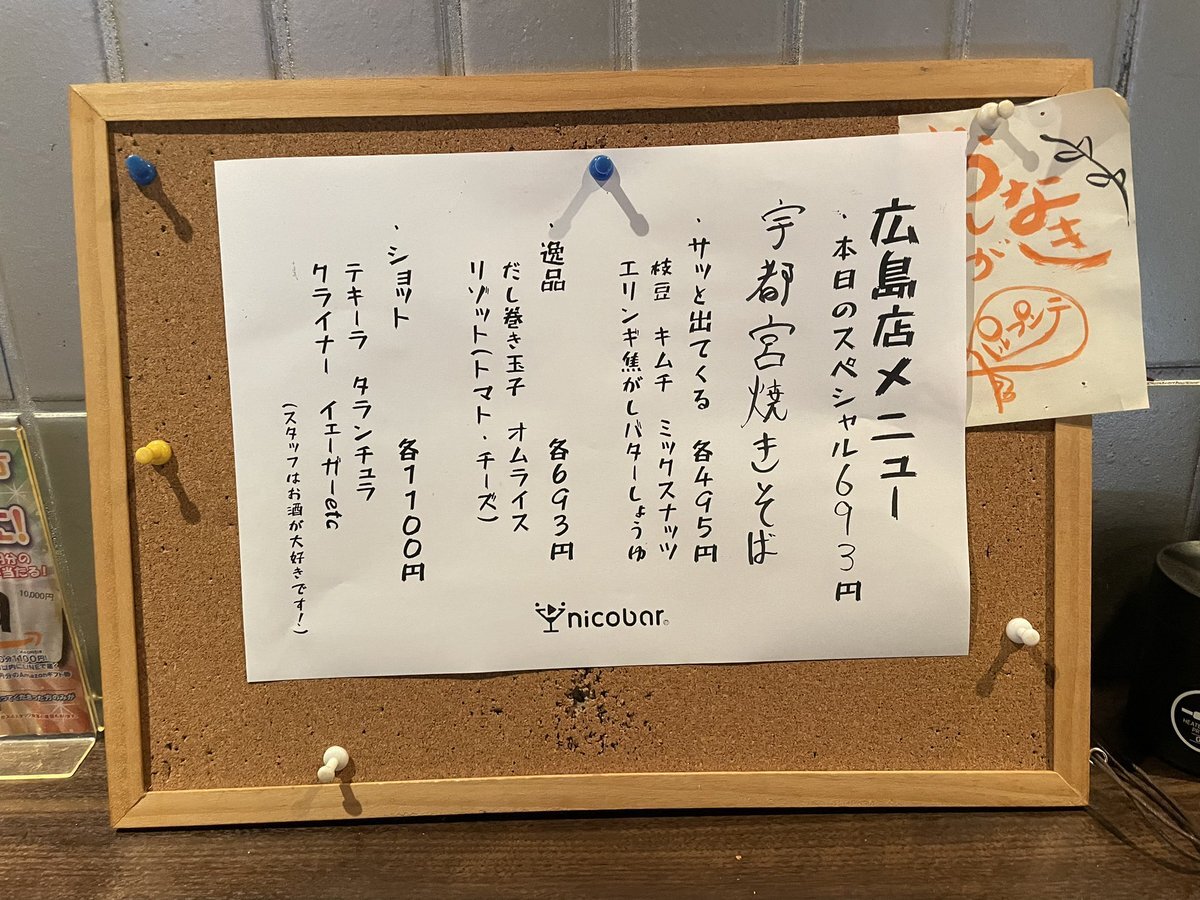 広島店メニュー
・本日のスペシャル693円
宇都宮焼きそば
・サッと出てくる 各495円
枝豆 キムチ ミックスナッツ
エリンギ焦がしバターしょうゆ
・逸品 各693円
だし巻き玉子 オムライス
リゾット(トマト・チーズ)
・ショット 各1100円
テキーラ タランチュラ
クライナー イェーガーetc
(スタッフはお酒が大好きです!)
nicobar
うなき
しが
10,000円